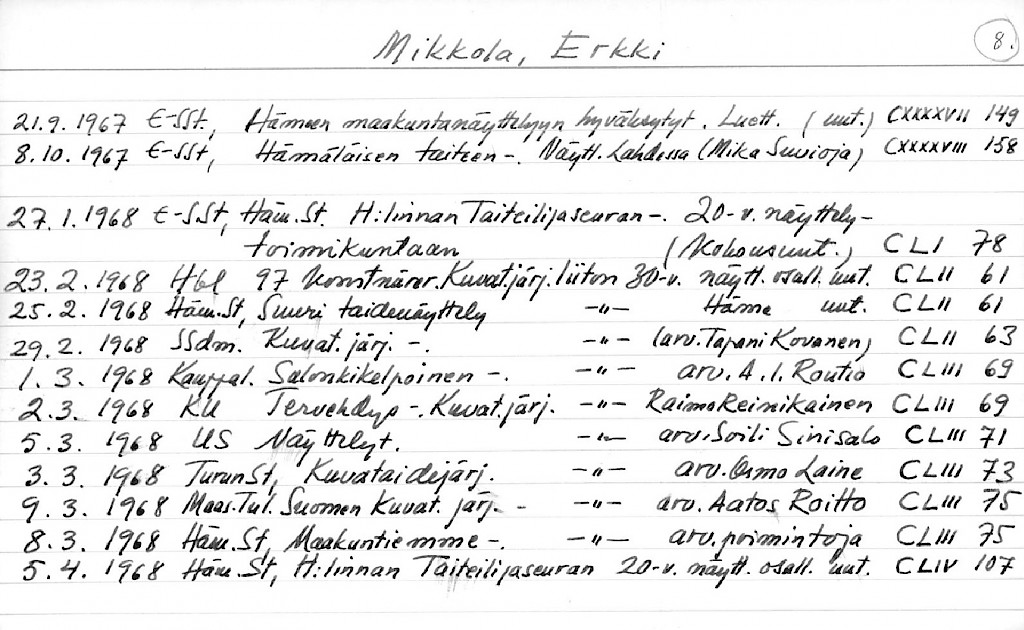 Mikkola, Erkki 8.
21.9.1967 E-SSt., Hämeen maakuntanäyttelyyn hyväksytyt. Luett. (uut.) CXXXXVII 149
8.10.1967 E-SSt, Hämäläisen taiteen -. Näytt. Lahdessa (Mika Suvioja) CXXXXVIII 158
27.1.1968 E-SSt, Häm.St. H:linnan Taiteilijaseuran -. 20-v. näyttely-
toimikuntaan (Kokousuut.) CLI 78
23.2.1968 Hbl 97 konstnärer. Kuvat.järj. liiton 30-v. näytt. osall. uut. CLII 61
25.2.1968 Häm.St, Suuri taidenäyttely -"- Häme uut. CLII 61
29.2.1968 SSdm. Kuvat.järj. -. -"- (arv. Tapani Kovanen) CLII 63
1.3.1968 Kauppal. Salonkikelpoinen -. -"- arv. A.I. Routio CLIII 69
2.3.1968 KU Tervehdys -. Kuvat.järj. -"- Raimo Reinikainen CLIII 69
5.3.1968 US Näyttelyt. -"- arv. Soili Sinisalo CLIII 71
3.3.1968 TurunSt, Kuvataidejärj. -"- arv. Osmo Laine CLIII 73
9.3.1968 Maas.Tul. Suomen Kuvat. järj. - -"- arv. Aatos Roitto CLIII 75
8.3.1968 Häm.St, Maakuntiemme -. -"- arv. poimintoja CLIII 75
5.4.1968 Häm.St, H:linnan Taiteilijaseuran 20-v. näytt. osall. uut. CLIV 107